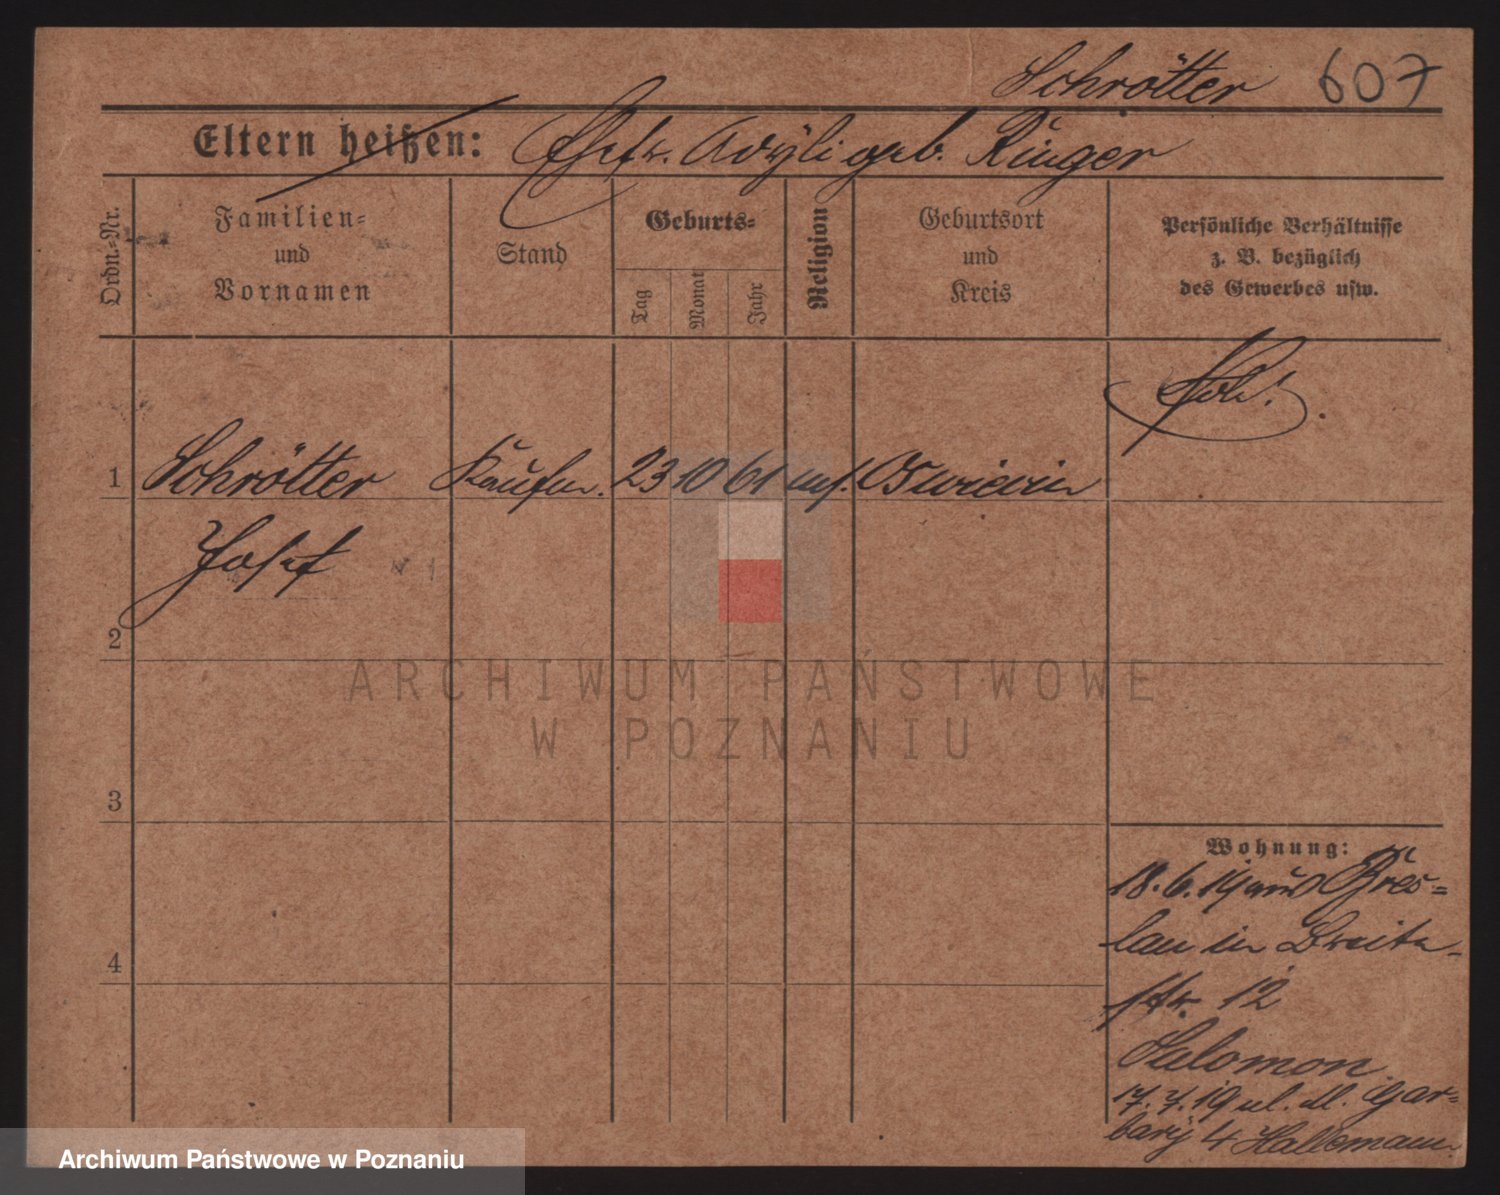 Schrötter 607
Eltern heißen: Ehefr. Adyli geb. Ringer
Ordn.=Nr.
Familien=
und
Vornamen
Stand
Geburts=
Tag
Monat
Jahr
Religion
Geburtsort
und
Kreis
Persönliche Verhältnisse
z. B. bezüglich
des Gewerbes usw.
1 Schrötter Kaufm. 23 10 61 mos. Oswiecim
Josef
2
3
4
Wohnung:
18. 6. 19 aus Bres=
lau in Breite=
str. 12
Salomon
17. 7. 19 ul. M. Gar=
bary 4 Hallemann
ARCHIWUM PAŃSTWOWE
W POZNANIU
Archiwum Państwowe w Poznaniu